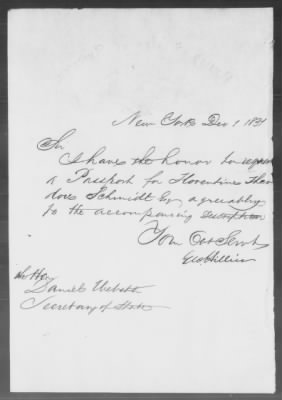 New York Dec 1 1851
Sir
I have the honor to request
a Passport for Florentine Theo
dore Schmidt Esq agreeably
to the accompanying description
Your Obt Servt
Geo Hillier
To the Hon
Daniel Webster
Secretary of State